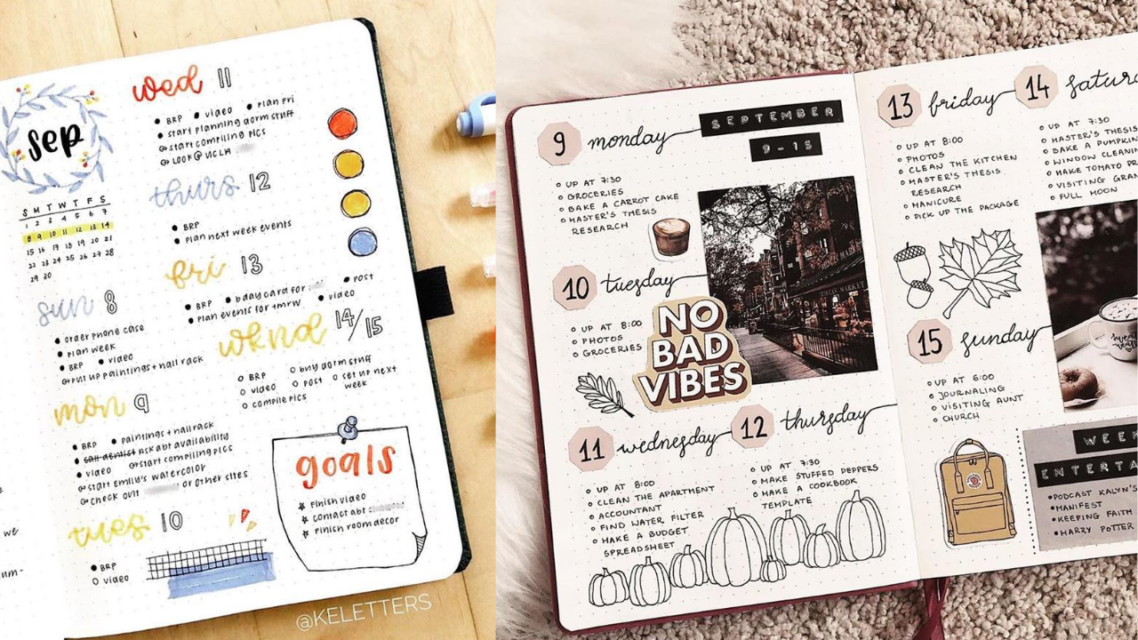 sep
S M T W T F S
1 2 3 4 5 6 7
8 9 10 11 12 13 14
15 16 17 18 19 20 21
22 23 24 25 26 27 28
29 30
sun 8
order phone case
plan week
BRP video
put up paintings + nail rack
mon 9
BRP paintings + nail rack
call dentist ask abt availability
video start compiling pics
start emilu's watercolor
check out or other sites
tues 10
BRP
video
wed 11
BRP video plan fri
start planning dorm stuff
start compiling pics
LOOK @ UCLH
thurs 12
BRP
plan next week events
fri 13
BRP bday card for post
plan events for tmrw video
wknd 14/15
BRP buy dorm stuff
video post set up next
compile pics week
goals
finish video
contact abt
finish room decor
@KELETTERS
SEPTEMBER
9-15
9 monday
UP AT 7:30
GROCERIES
BAKE A CARROT CAKE
MASTER'S THESIS
RESEARCH
10 tuesday
UP AT 8:00
PHOTOS
GROCERIES
NO
BAD
VIBES
11 wednesday
UP AT 8:00
CLEAN THE APARTMENT
ACCOUNTANT
FIND WATER FILTER
MAKE A BUDGET
SPREADSHEET
12 thursday
UP AT 7:30
MAKE STUFFED PEPPERS
MAKE A COOKBOOK
TEMPLATE
13 friday
UP AT 8:00
PHOTOS
CLEAN THE KITCHEN
MASTER'S THESIS
RESEARCH
MANICURE
PICK UP THE PACKAGE
14 satur
UP AT 7:30
MASTER'S THESIS
BAKE A PUMPKIN
WINDOW CLEANIN
MAKE TOMATO
VISITING GRAN
FULL MOON
15 sunday
UP AT 6:00
JOURNALING
VISITING AUNT
CHURCH
WEE
ENTERTA
PODCAST KALYN'S
MANIFEST
KEEPING FAITH
HARRY POTTER